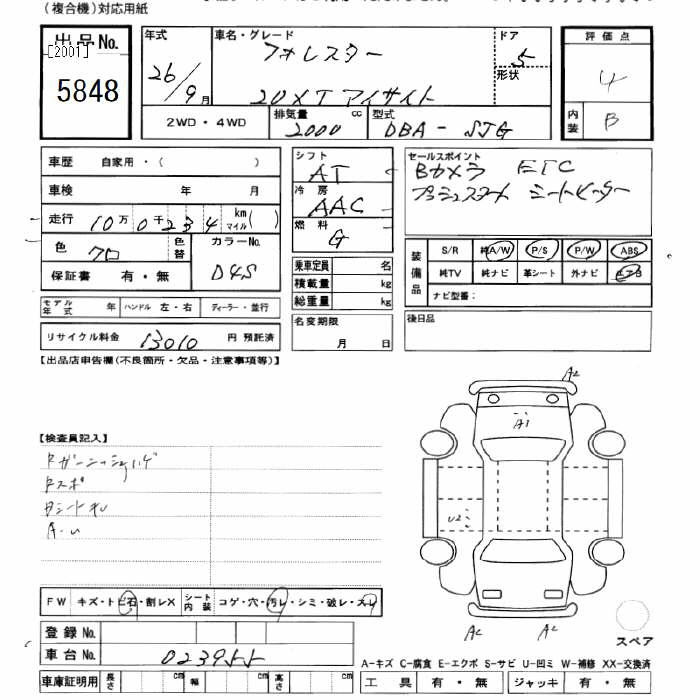 (複合機)対応用紙
出品No.
[2001]
5848
年式
26/9月
車名・グレード
フォレスター
20XT アイサイト
ドア
5
形状
評価点
4
内装
B
2WD・4WD
排気量
2000 cc
型式
DBA - SJG
車歴 自家用・( )
車検 年 月
走行 10万0千234 km マイル( )
色 クロ 色替
カラーNo.
D4S
保証書 有・無
シフト
AT
冷房
AAC
燃料
G
乗車定員 名
積載量 kg
総重量 kg
名変期限
月 日
セールスポイント
Bカメラ ETC
プッシュスタート シートヒーター
装備品
S/R 純A/W P/S P/W ABS
純TV 純ナビ 革シート 外ナビ エアB
ナビ型番:
後日品
モデル年式 年 ハンドル 左・右 ディーラー・並行
リサイクル料金 13010 円 預託済
【出品店申告欄(不良箇所・欠品・注意事項等)】
【検査員記入】
A2
A1
U2
A2
A2
スペア
FW キズ・トビ石・割レX シート内装 コゲ・穴・汚レ・シミ・破レ・スレ
登録No.
車台No. 023955
車庫証明用 長さ cm 幅 cm 高さ cm
A-キズ C-腐食 E-エクボ S-サビ U-凹ミ W-補修 XX-交換済
工具 有・無 ジャッキ 有・無